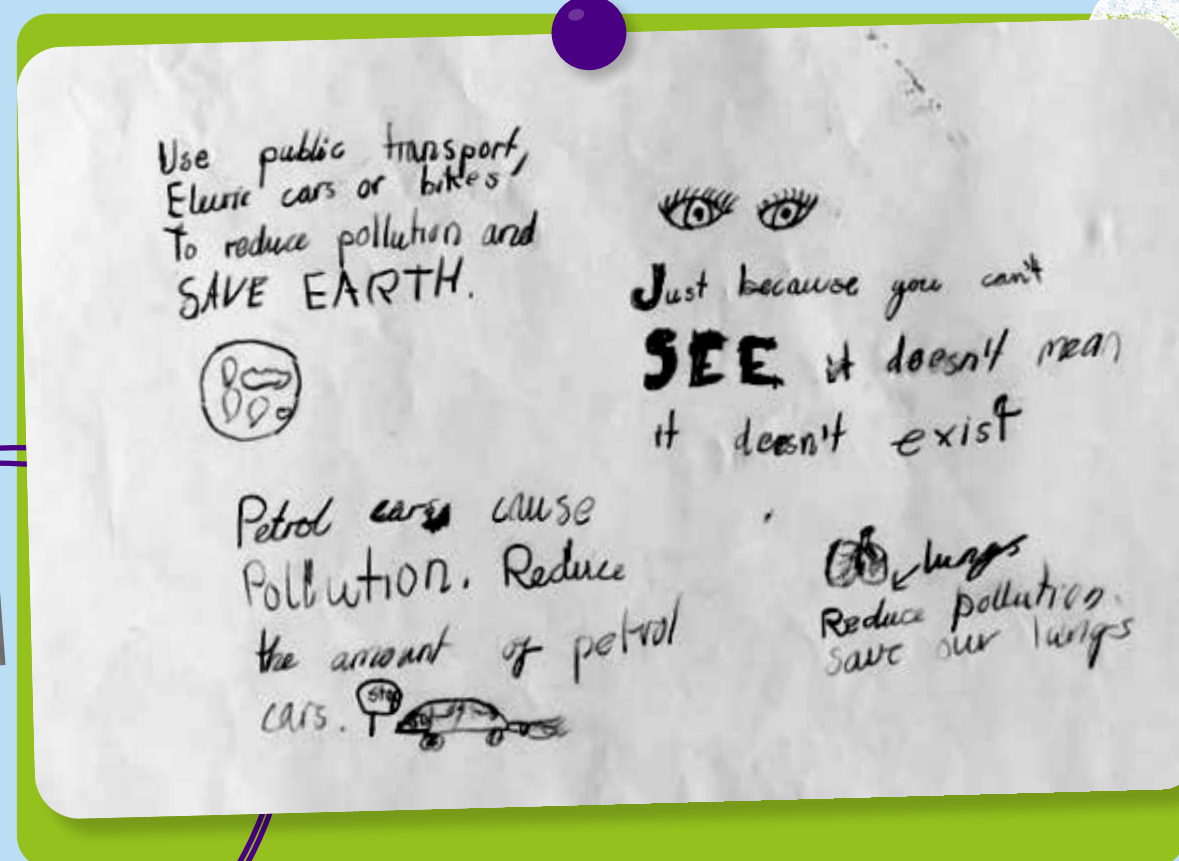 Use public transport,
Elecric cars or bikes
To reduce pollution and
SAVE EARTH.
Just because you can't
SEE it doesn't mean
it doesn't exist
Petrol cars cause
Pollution. Reduce
the amount of petrol
cars.
stop
lungs
Reduce pollution.
Save our lungs